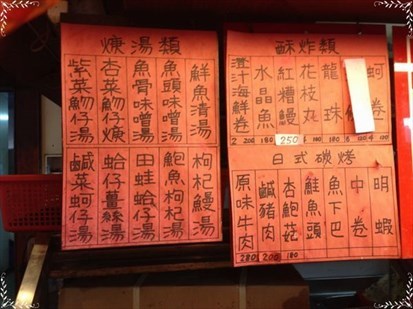 羹湯類
鮮魚清湯
魚頭味噌湯
魚骨味噌湯
杏菜魩仔羹
紫菜魩仔湯
枸杞鰻湯
鮑魚枸杞湯
田蛙蛤仔湯
蛤仔薑絲湯
鹹菜蚵仔湯
酥炸類
蚵卷
龍珠
花枝丸
紅糟鰻
250
水晶魚
180
海鮮卷
200
日式碳烤
明蝦
中卷
魚下巴
鮭魚頭
杏鮑菇
180
鹹豬肉
200
原味牛肉
280